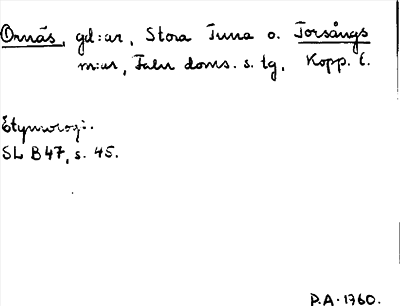 Ornäs, gd:ar, Stora Tuna o. Torsångs
m:ar, Falu doms. s. tg, Kopp. l.
Etymologi:.
SL B47, s. 45.
P.A. 1760.